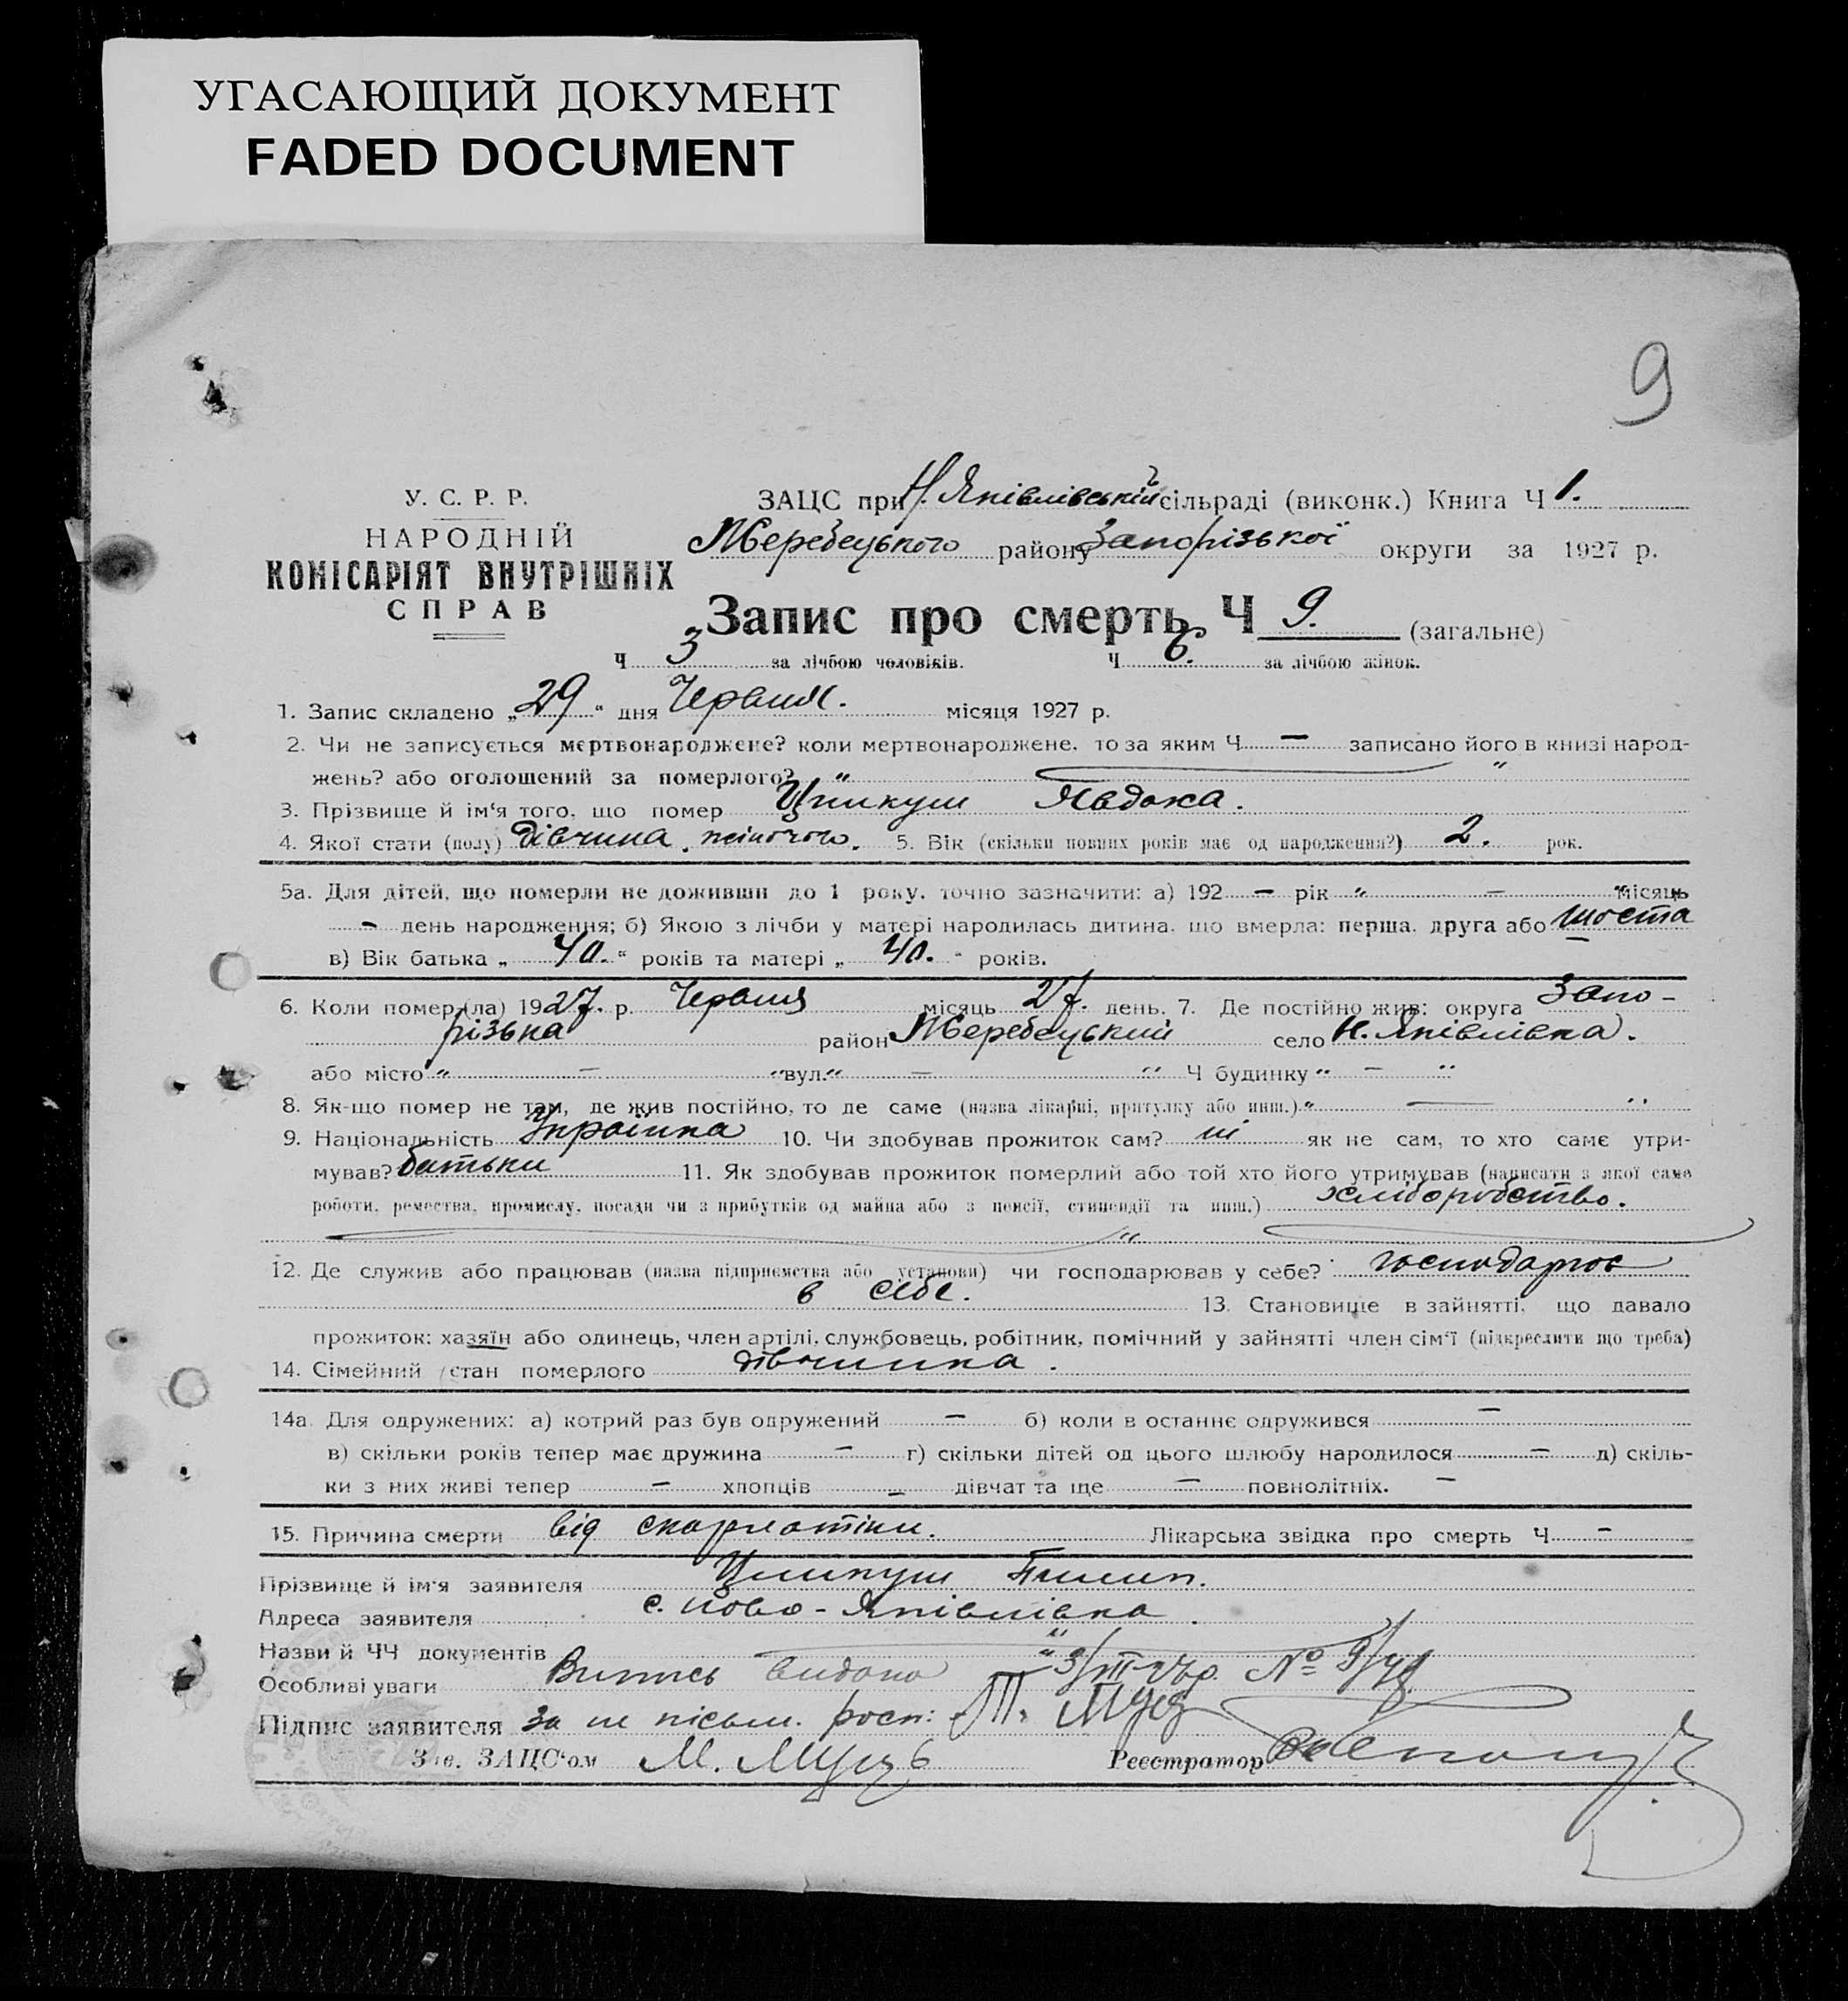 УГАСАЮЩИЙ ДОКУМЕНТ
FADED DOCUMENT
9
У. С. Р. Р.
НАРОДНІЙ
КОМІСАРІЯТ ВНУТРІШНІХ
СПРАВ
ЗАЦС при Н. Яківлівській сільраді (виконк.) Книга Ч 1.
Жеребецького району Запорізької округи за 1927 р.
Запис про смерть Ч 9. (загальне)
Ч 3 за лічбою чоловіків. Ч 6. за лічбою жінок.
1. Запис складено „29“ дня Червня. місяця 1927 р.
2. Чи не записується мертвонароджене? коли мертвонароджене. то за яким Ч — записано його в книзі народ-
жень? або оголошений за померлого? „ — “
3. Прізвище й ім‘я того, що помер Явдоха.
4. Якої стати (полу) дівчина. жіночого. 5. Вік (скільки повних років має од народження?) 2. рок.
5а. Для дітей, що померли не доживши до 1 року. точно зазначити: а) 192 — рік „ — “ місяць
— день народження; б) Якою з лічби у матері народилась дитина. що вмерла: перша. друга або шоста
в) Вік батька „ 40. “ років та матері „ 40. “ років.
6. Коли помер (ла) 1927. р. Червня місяць 27. день. 7. Де постійно жив: округа Запо-
різька район Жеребецький село Н. Яківлівка.
або місто „ — “ вул. „ — “ Ч будинку „ — “
8. Як-що помер не там, де жив постійно, то де саме (назва лікарні, притулку або инш.) „ — “
9. Національність Українка 10. Чи здобував прожиток сам? ні як не сам, то хто саме утри-
мував? батьки 11. Як здобував прожиток померлий або той хто його утримував (написати з якої саме
роботи, ремества, промислу, посади чи з прибутків од майна або з пенсії, стипендії та инш.) хліборобство.
„
12. Де служив або працював (назва підприємства або установи) чи господарював у себе? господарює
в себе. 13. Становище в зайнятті, що давало
прожиток: хазяїн або одинець, член артілі, службовець, робітник, помічний у зайнятті член сім‘ї (підкреслити що треба)
14. Сімейний стан померлого дівчинка.
14а. Для одружених: а) котрий раз був одружений — б) коли в останнє одружився —
в) скільки років тепер має дружина — г) скільки дітей од цього шлюбу народилося — д) скіль-
ки з них живі тепер — хлопців — дівчат та ще — повнолітніх. —
15. Причина смерти від скарлатіни. Лікарська звідка про смерть Ч —
Прізвище й ім‘я заявителя Пилип.
Адреса заявителя с. Ново-Яківлівка.
Назви й ЧЧ документів
Особливі уваги Витяг видано №
Підпис заявителя За не письм. росп:
Зав. ЗАЦС‘ом М. Реєстратор